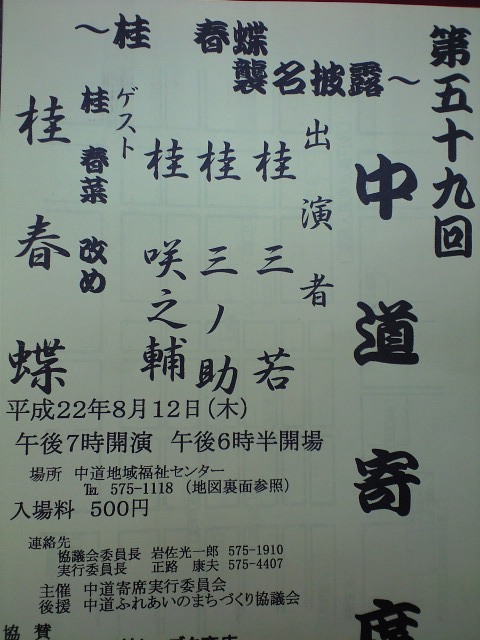 第五十九回
中道寄席
～桂 春蝶
襲名披露～
出演者
桂 三若
桂 三ノ助
桂 咲之輔
ゲスト
桂 春菜 改め
桂 春蝶
平成22年8月12日(木)
午後7時開演 午後6時半開場
場所 中道地域福祉センター
℡ 575-1118 (地図裏面参照)
入場料 500円
連絡先
協議会委員長 岩佐光一郎 575-1910
実行委員長 正路 康夫 575-4407
主催 中道寄席実行委員会
後援 中道ふれあいのまちづくり協議会
協賛